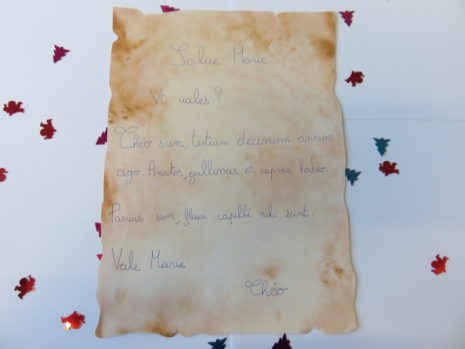 Salue Marie
Vt uales?
Théo sum, tertium decimum annum
ago. Anatos, gallinas et capras habeo.
Paruus sum, flaui capilli mihi sunt.
Vale Marie
Théo